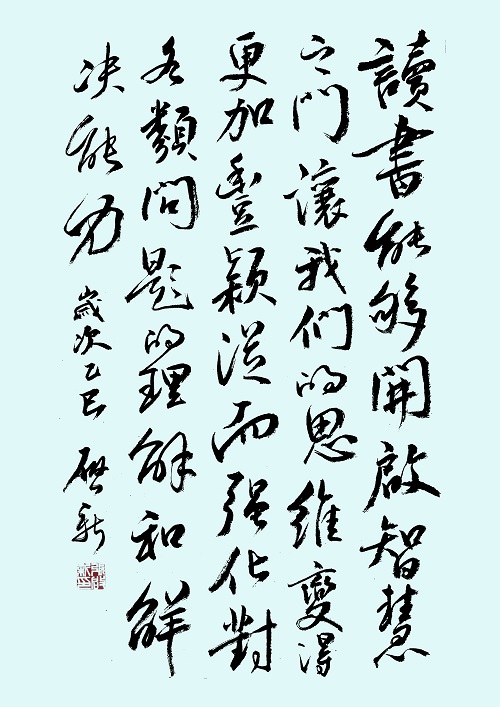 讀書能够開啟智慧
之門讓我們的思維變得
更加豐穎從而强化對
各類問題的理解和解
决能力
歲次乙巳 啟新